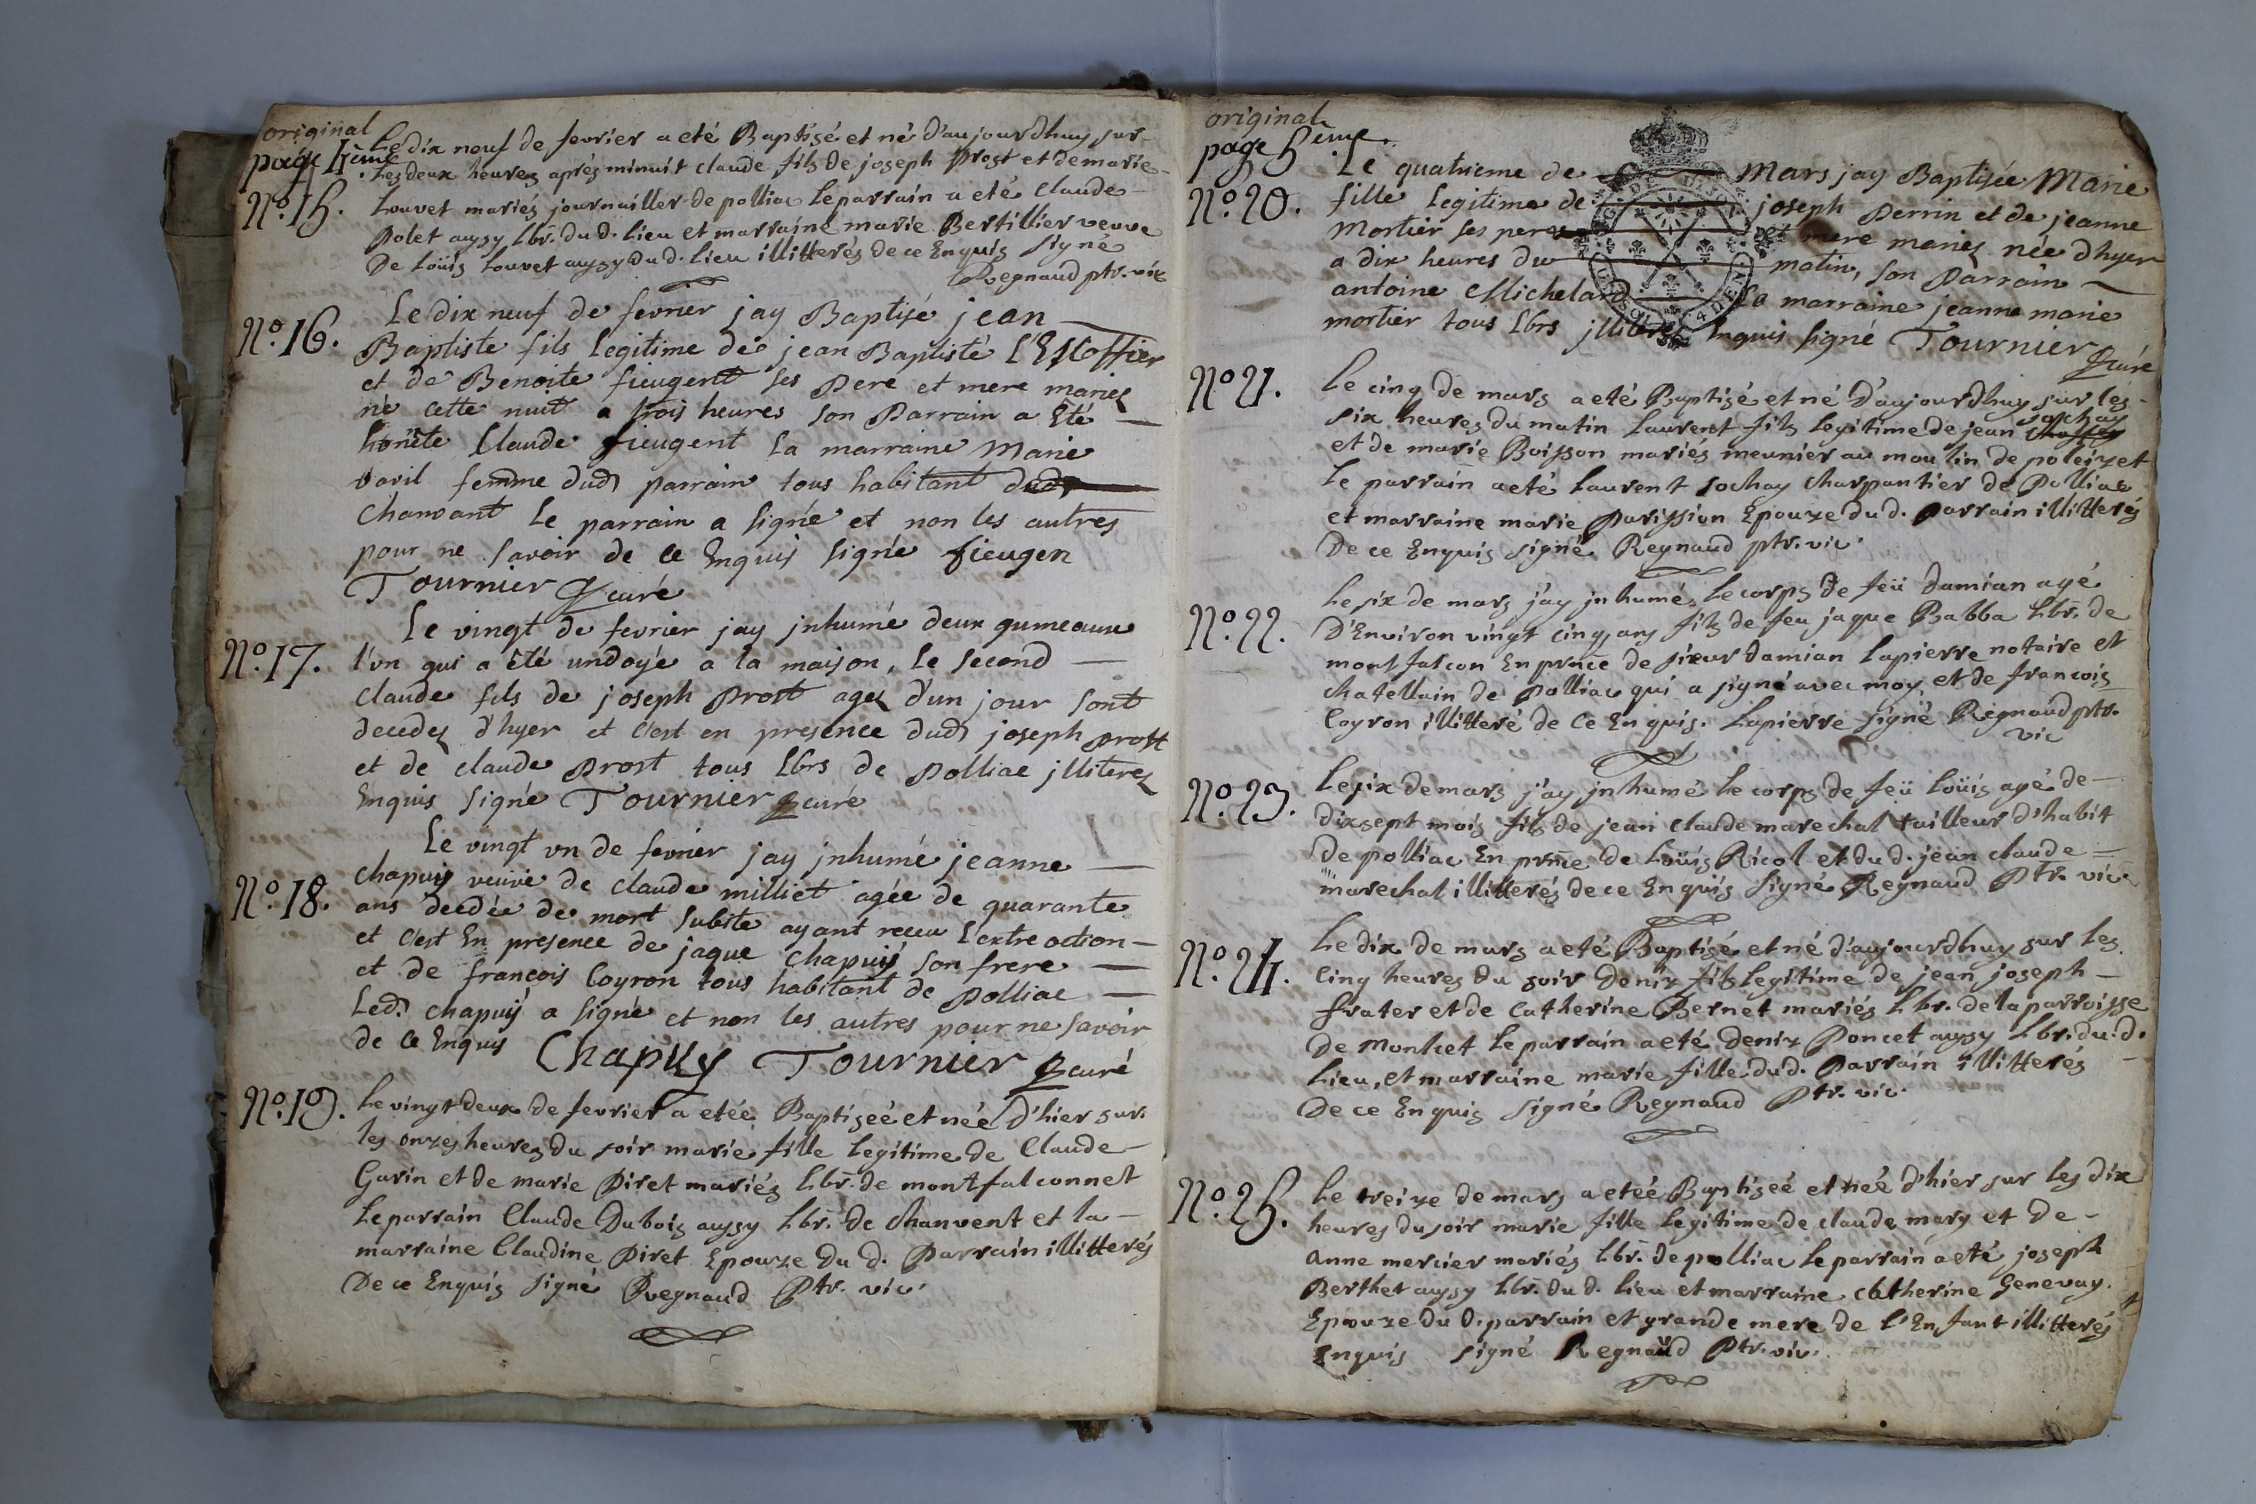 original
page 4ème
Le dix neuf de fevrier a eté Baptizé et né d'aujourdhuy sur
les deux heures aprés minuit claude fils de joseph prost et de marie
N.o 15. Louvet mariés journailler de polliac le parrain a eté claude
polet aussy lbr. du d. lieu et marraine marie Bertillier veuve
De Loüis Louvet aussy du d. lieu illitterés de ce Enquis signé
Regnaud ptr. vic
Le dix neuf de fevrier jay Baptisé jean
N.o 16. Baptiste fils legitime de jean Baptiste l'Escoffier
et de Benoite fieugent ses pere et mere mariez
né cette nuit a trois heures son parrain a Eté
honete Claude fieugent la marraine marie
varil femme dud parrain tous habitant dud
chanvant le parrain a signé et non les autres
pour ne savoir de ce Enquis signé fieugen
Tournier curé
Le vingt de fevrier jay jnhumé deux gumeaux
N.o 17. l'vn qui a été undoyé a la maison, le second
claude fils de joseph prost agez d'un jour sont
decedez d'hyer et c'est en presence dud joseph prost
et de claude prost tous lbrs de polliac jlliterez
Enquis signé Tournier curé
Le vingt vn de fevrier jay jnhumé jeanne
chapuy veuve de claude milliet agée de quarante
N.o 18. ans decdée de mort subite ayant receu l'extre oction
et c'est En presence de jaque chapuis son frere
et de francois Coyron tous habitant de polliac
Led. chapuis a signé et non les autres pour ne savoir
de ce Enquis Chapuy Tournier curé
N.o 19. Le vingt deux de fevrier a etée Baptizeé et née d'hier sur
les onzes heures du soir marie fille legitime de Claude
Gavin et de marie Piret mariés lbr. de montfalconnet
Le parrain Claude Dubois aussy lbr. de chanvent et la
marraine Claudine Piret Epouze du d. Parrain illitterés
De ce Enquis signé Regnaud Ptr. vic.
original
page 5ème.
Le quatrieme de mars jay Baptisée Marie
N.o 20. fille legitime de joseph perrin et de jeanne
mortier ses pere et mere mariez née d'hyer
a dix heures du matin, son parrain
antoine Michelard La marraine jeanne marie
mortier tous lbrs jlliterez Enquis signé Tournier
curé
N.o 21. Le cinq de mars a eté Baptizé et né D'aujourdhuy sur les
six heures du matin Laurent fils legitime de jean sochay
et de marie Boisson mariés meunier au moulin de poleizet
Le parrain a eté Laurent sochay charpantier de Polliac
et marraine marie Parission Epouze du d. parrain illitterés
De ce Enquis signé Regnaud ptr. vic.
Le six de mars j'ay jnhumé le corps de feü damian agé
N.o 22. D'Environ vingt cinq ans fils de feu jaque Babba lbr. de
montfalcon En prnce de sieur damian Lapierre notaire et
chatellain de Polliac qui a signé avec moy, et de francois
Coyron illitteré de ce Enquis. Lapierre signé Regnaud ptr.
vic
N.o 23. Le six de mars j'ay jnhumé le corps de feü Loüis agé de
dixsept mois fils de jean claude marechal tailleur d'habit
de polliac En prnce de Loüis Ricol et du d. jean claude
marechal illitterés de ce Enquis signé Regnaud Ptr. vic
N.o 24. Le dix de mars a eté Baptizé et né d'aujourdhuy sur les
cinq heures du soir deniz fils legitime de jean joseph
frater et de Catherine Bernet mariés lbr. de la parroisse
De montcet le parrain a eté deniz Poncet aussy lbr. du d.
Lieu, et marraine marie fille du d. Parrain illitterés
De ce Enquis signé Regnaud Ptr. vic.
N.o 25. Le treize de mars a eteé Baptizeé et neé d'hier sur les dix
heures du soir marie fille legitime de claude mary et de
anne mercier mariés lbr. de polliac le parrain a eté joseph
Berthet aussy lbr. du d. lieu et marraine catherine Genevay.
Epouze du d. parrain et grande mere de l'Enfant illitterés
Enquis signé Regnaud Ptr. vic.